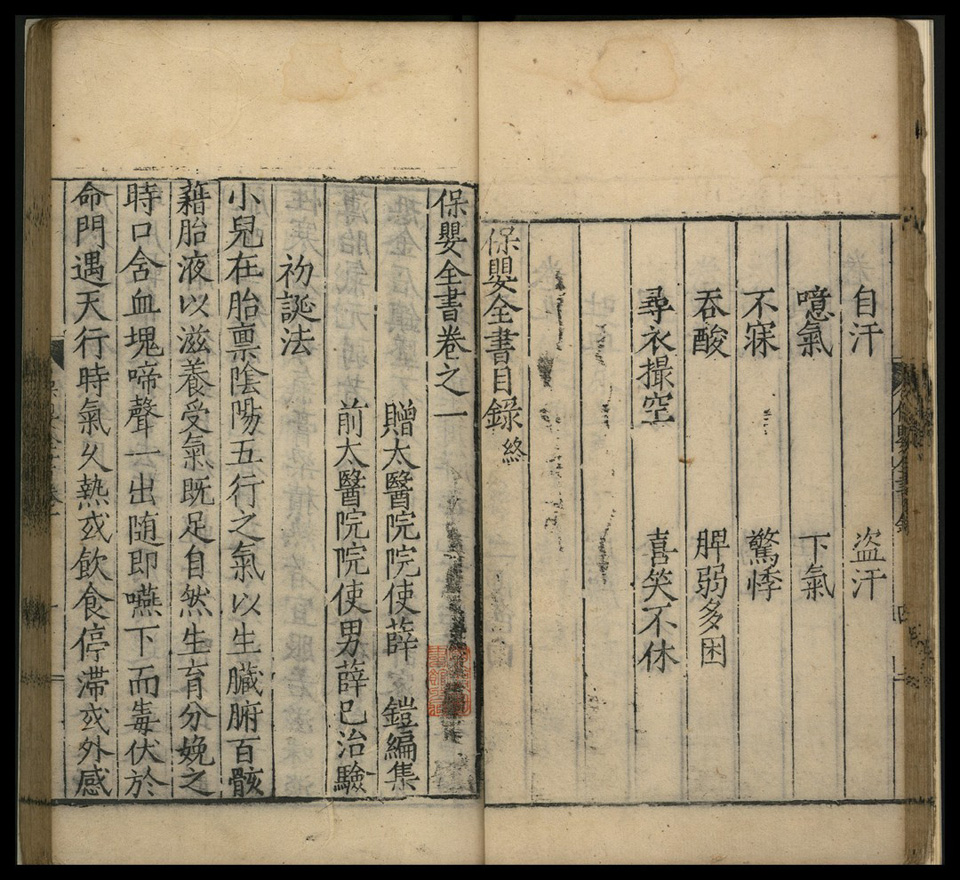 自汗　盗汗
噫氣　下氣
不寐　驚悸
吞酸　脾弱多困
尋衣撮空　喜笑不休
保嬰全書目錄終
保嬰全書卷之一
贈太醫院院使薛　鎧編集
前太醫院院使男薛已治驗
初誕法
小兒在胎禀陰陽五行之氣以生臟腑百骸
藉胎液以滋養受氣既足自然生育分娩之
時口含血塊啼聲一出随即嚥下而毒伏於
命門遇天行時氣乆熱或飲食停滯或外感